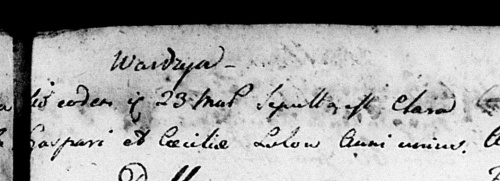 Wardzya -
Die eodem q 23 Sepulta est Clara
Gaspari et Cæciliæ Lolow Anni unius.